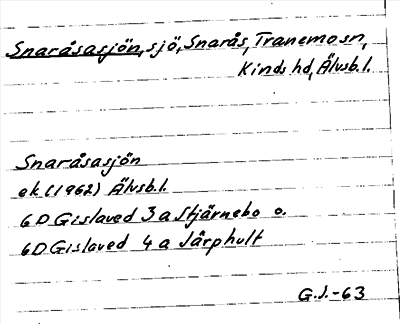 Snaråsasjön, sjö, Snarås, Tranemo sn,
Kinds hd, Älvsb.l.
Snaråsasjön
ek (1962) Älvsb.l.
6D Gislaved 3a Stjärnebo o.
6D Gislaved 4a Järphult
G.J.-63